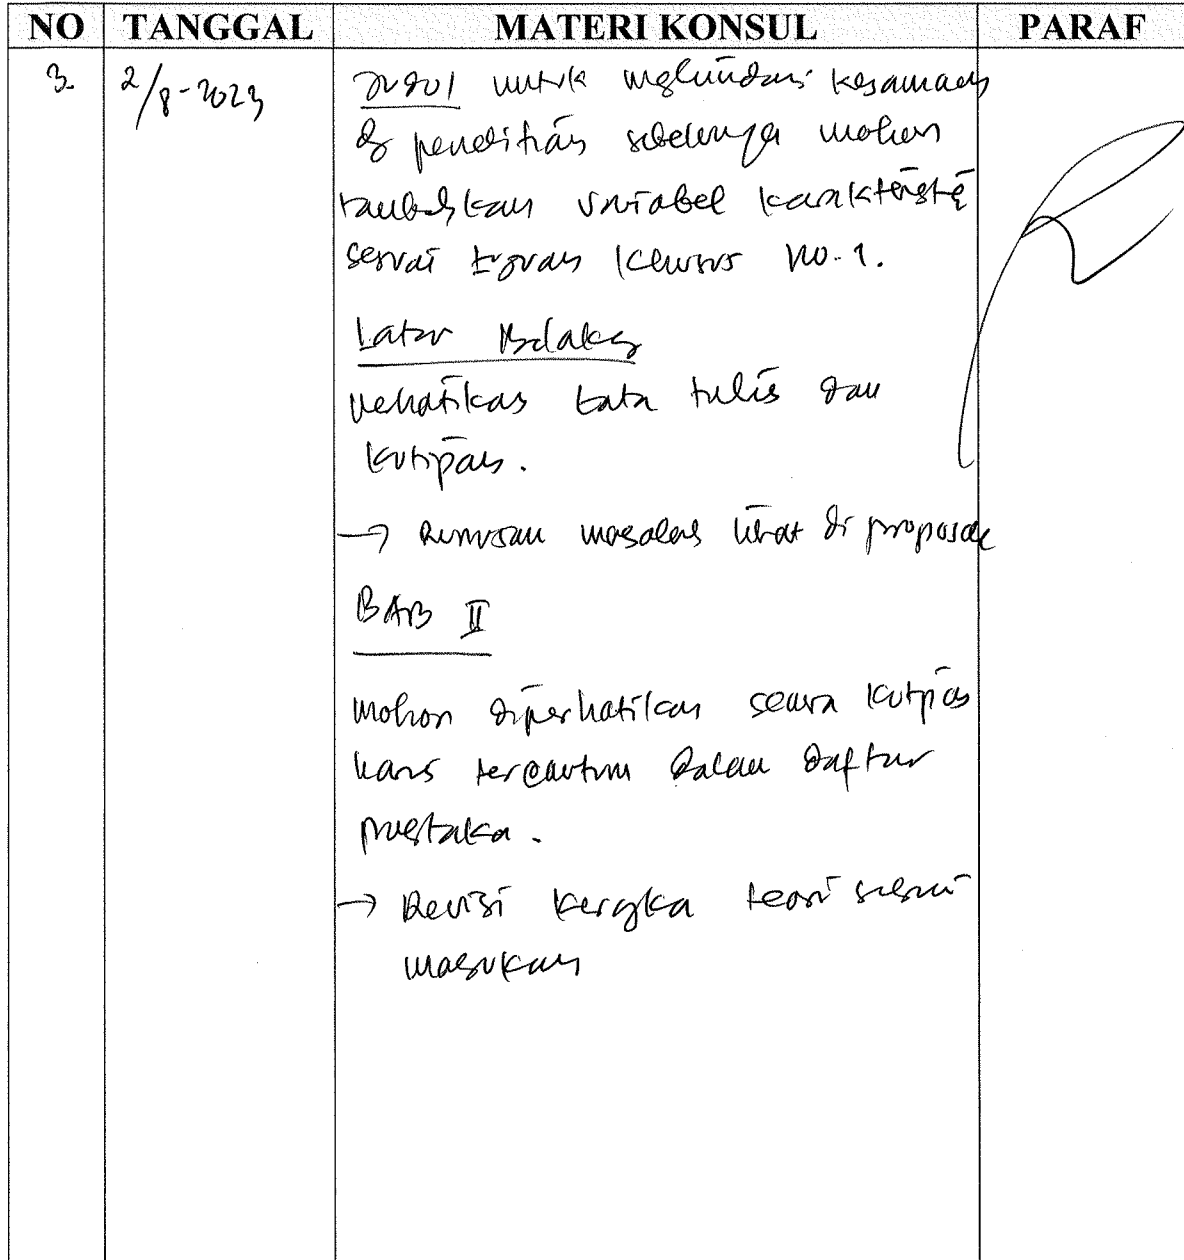 NO TANGGAL MATERI KONSUL PARAF
3. 2/8-2023 Judul untuk menghindari kesamaan
dg penelitian sebelumnya mohon
tambahkan variabel karakteristik
sesuai tujuan khusus no. 1.
Latar Belakang
Perhatikan tata tulis dan
kutipan.
→ Rumusan masalah lihat di proposal
BAB II
mohon diperhatikan semua kutipan
harus tercantum dalam daftar
pustaka.
→ Revisi kerangka teori sesuai
masukan